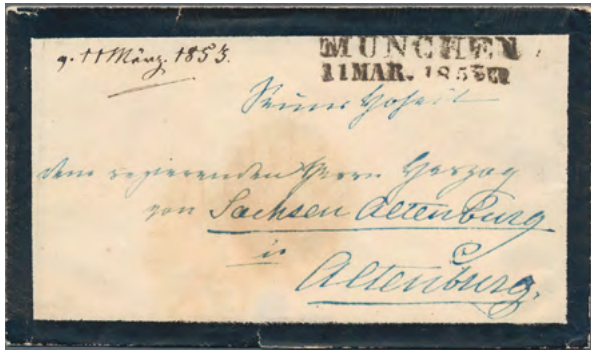 11 März. 1853.
MÜNCHEN
11 MAR. 1853
Seiner Hoheit
dem regierenden Herrn Herzog
von Sachsen Altenburg
in
Altenburg.